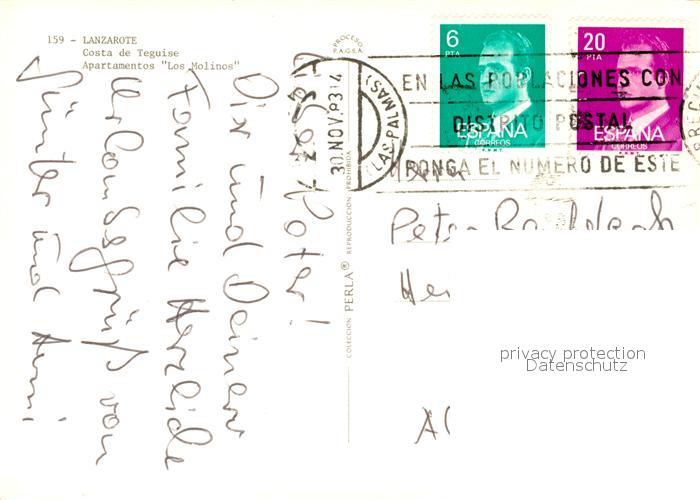 159 - LANZAROTE
Costa de Teguise
Apartamentos "Los Molinos"
PROCESO
P.A.G.S.A.
Lieber Peter!
Dir und Deiner
Familie Herzliche
Urlaubsgrüße von
Günter und
COLECCION PERLA® REPRODUCCION PROHIBIDA
6
PTA
ESPAÑA
CORREOS
20
PTA
ESPAÑA
CORREOS
30 NOV. 83 14
(LAS PALMAS)
EN LAS POBLACIONES CON
DISTRITO POSTAL
PONGA EL NUMERO DE ESTE
Peter
privacy protection
Datenschutz